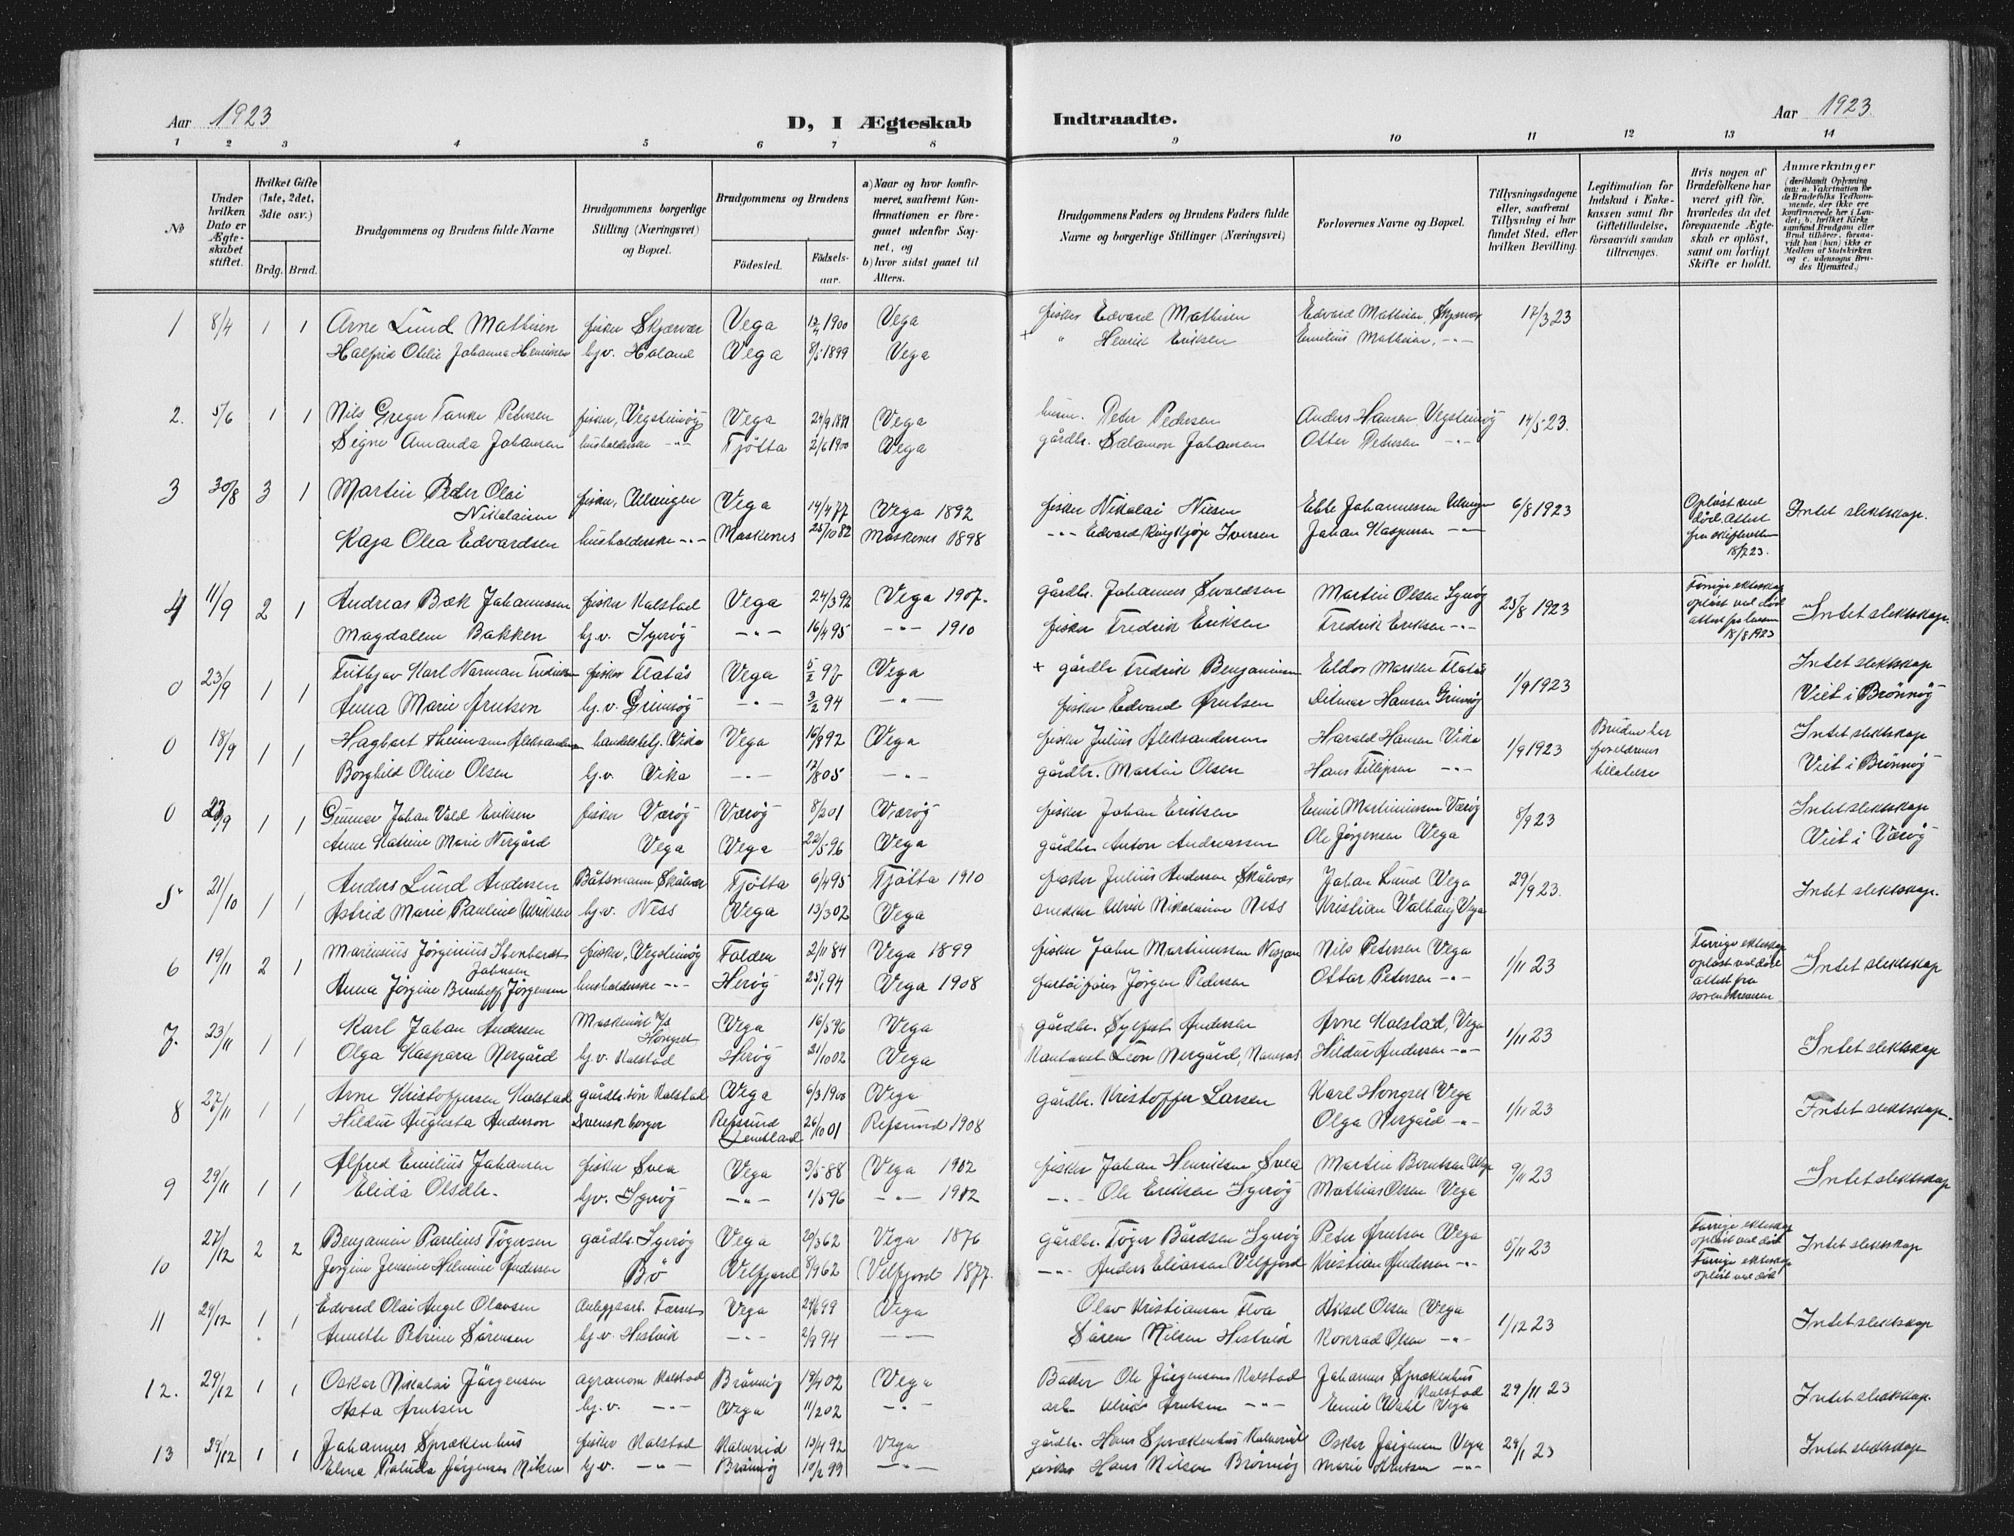 Aar 1923
D, I Ægteskab Indtraadte.
Aar 1923
1 2 3 4 5 6 7 8 9 10 11 12 13 14
No
Under hvilken Dato er Ægteskabet stiftet.
Hvilket Gifte (1ste, 2det, 3die osv.)
Brdg. Brud.
Brudgommens og Brudens fulde Navne
Brudgommens borgerlige Stilling (Næringsvei) og Bopæl.
Brudgommens og Brudens
Fødested. Fødselsaar.
a) Naar og hvor konfirmeret, saafremt Konfirmationen er foregaaet udenfor Sognet, og
b) hvor sidst gaaet til Alters.
Brudgommens Faders og Brudens Faders fulde Navne og borgerlige Stillinger (Næringsvei)
Forlovernes Navne og Bopæl.
Tillysningsdagene eller, saafremt Tillysning ei har fundet Sted, efter hvilken Bevilling.
Legitimation for Indskud i Enkekassen samt for Giftetilladelse, forsaavidt saadan tiltrænges.
Hvis nogen af Brudefolkene har været gift før, hvorledes da det foregaaende Ægteskab er opløst, samt om lovligt Skifte er holdt.
Anmærkninger
(deriblandt Oplysning om: a. Vakcination for de Brudefolks Vedkommende, der ikke ere konfirmerede her i Landet; b. hvilket Kirkesamfund Brudgom eller Brud tilhører, forsaavidt han (hun) ikke er Medlem af Statskirken og c. udensogns Brudes Hjemsted.)
1 8/4 1 1 Arne Lund Mathisen fisker Skjærvær Vega 1900 Vega fisker Edvard Mathisen Edvard Mathisen, 17/3 23
Halfrid Johanna Henriksen hj.v. Vega 8/5 1899 Vega " Henrik Eriksen Emilius Mathisen, -"-
2. 5/6 1 1 Nils Greger Tanke Petersen fisker, Vegsteinøy Vega Vega husm. Peder Pedersen Anders Hansen Vegsteinøy 14/5 23.
Signe Amanda Johansen husholderske -"- Tjøtta 2/6 1900 Vega gårdbr. Salamon Johansen Otter Petersen -"-
3 30/8 3 1 Martin Peder Olai Nikolaisen fisker, Ulvingen Vega 14/4 77 Vega 1892 fisker Nikolai Nilsen Ebbe Johannessen Ulvingen 6/8 1923 Opløst ved død. Attest fra skifteretten 18/7 23. Intet slektskap.
Kaja Olea Edvardsen husholderske -"- Moskenes 25/10 82 Moskenes 1898 -"- Edvard Ringkjøp Iversen Johan Kaspersen -"-
4 11/9 2 1 Andreas Bæk Johannessen fisker Kalstad Vega 24/3 92 Vega 1907. gårdbr. Johannes Sivaldsen Martin Olsen Igerøy 25/8 1923 Forrige ekteskap opløst ved død attest fra lensm. 18/8 1923 Intet slektskap.
Magdalene Bakken hj.v. Igerøy -"- 16/4 95 -"- 1910 fisker Fredrik Eriksen Fredrik Eriksen -"-
0 23/9 1 1 Fritjov Karl Norman Fredriksen fisker Flatås Vega Vega + gårdbr. Fredrik Benjaminsen 1/9 1923 Intet slektskap
Anna Marie Arntsen hj.v. Grimsøy -"- 3/2 94 -"- fisker Edvard Arntsen Ditmar Hansen Grimsøy Viet i Brønnøy
0 18/9 1 1 Hagbart Aleksandersen handelsbetj. Vika Vega 16/8 92 Vega fisker Julius Aleksandersen Harald Hansen Vika 1/9 1923 Bruden har foreldrenes tillatelse Intet slektskap
Borghild Oline Olsen hj.v. Vika -"- 12/8 05 -"- gårdbr. Martin Olsen Hans Fillipsen -"- Viet i Brønnøy
0 23/9 1 1 Gunnar Johan Vald Eriksen fisker Værøy Værøy 8/2 01 Værøy fisker Johan Eriksen Emil Martinussen Værøy 8/9 23 Intet slektskap
Anne Katrine Marie Nergård Vega Vega 22/5 96 Vega gårdbr. Anton Andreassen Ole Jørgensen Vega Viet i Værøy
5 21/10 1 1 Anders Lund Andersen Båtsmann Skålvær Tjøtta 6/4 95 Tjøtta 1910 fisker Julius Andersen Skålvær Johan Lund Vega 29/9 23. Intet slektskap.
Astrid Marie Pauline Ulriksen hj.v. Ness Vega 13/3 02 Vega snedker Ulrik Nikolaisen Ness Kristian Valhaug Vega
6 19/11 2 1 Marensius Jørginius Johnsen fisker, Vegsteinøy Folden 2/11 84 Vega 1899 fisker John Martinussen Nils Petersen Vega 1/11 23 Forrige ekteskap opløst ved død attest fra sorenskriveren Intet slektskap
Anna Jørgine Jørgensen husholderske -"- Herøy 25/1 94 Vega 1908 Jørgen Pedersen Ottar Petersen -"-
7. 23/11 1 1 Karl Johan Andersen Hongset Vega 16/5 96 Vega gårdbr. Sylfest Andersen Arne Kalstad, Vega 1/11 23 Intet slektskap
Olga Kaspara Nergård hj.v. Kalstad Herøy 21/10 02 Vega Leon Nergård, Namsos Hildur Andersen -"-
8 27/11 1 1 Arne Kristoffersen Kalstad gårdbr.søn Kalstad Vega 6/3 1900 Vega gårdbr. Kristoffer Larsen Karl Hongset Vega 1/11 23 Intet slektskap.
Hildur Augusta Anderson Svensk borger Refsund Jemtland 26/10 01 Refsund 1908 Olga Nergård -"-
9 29/11 1 1 Alfred Emilius Johansen fisker Svea Vega 3/5 88 Vega 1902 fisker Johan Henriksen Svea Martin Berntsen Vega 9/11 23 Intet slektskap
Elida Olsdtr. hj.v. Igerøy -"- 1/5 96 -"- 1912 -"- Ole Eriksen Igerøy Mathias Olsen Vega
10 27/12 2 2 Benjamin Parelius Tøgersen gårdbr. Igerøy Vega 20/3 62 Vega 1876 gårdbr. Tøger Bårdsen Igerøy Peter Arntsen Vega 5/11 23 Forrige ekteskap opløst ved død Intet slektskap
Jørgine Jensine Helmine Andersen Bø Velfjord 8/9 62 Velfjord 1877. -"- Anders Eliassen Velfjord Kristian Andersen -"- Forrige ekteskap opløst ved død
11 29/12 1 1 Edvard Olai Angel Olavsen Anleggsarb. Vega 24/6 99 Vega Olav Kristiansen Aksel Olsen Vega 1/12 23 Intet slektskap
Annette Petrine Sørensen hj.v. Hestvik -"- 2/9 94 -"- Søren Nilsen Hestvik Konrad Olsen -"-
12. 29/12 1 1 Oskar Nikolai Jørgensen agronom Kalstad Brønnøy 19/4 02 Vega Baker Ole Jørgensen Kalstad Johannes Sprækenhus Kalstad 29/11 23 Intet slektskap.
Asta Arntsen hj.v. -"- Vega 11/2 02 -"- arb. Arntsen -"- Emil Wahl Vega
13 29/12 1 1 Johannes Sprækenhus fisker Kalstad Kolvereid 13/4 92 Vega gårdbr. Hans Sprækenhus Kolvereid Oskar Jørgensen Vega 29/11 23 Intet slektskap
Elma Jørgensen hj.v. -"- Brønnøy 10/2 99 -"- fisker Hans Nilsen Brønnøy Marie Arntsen -"-